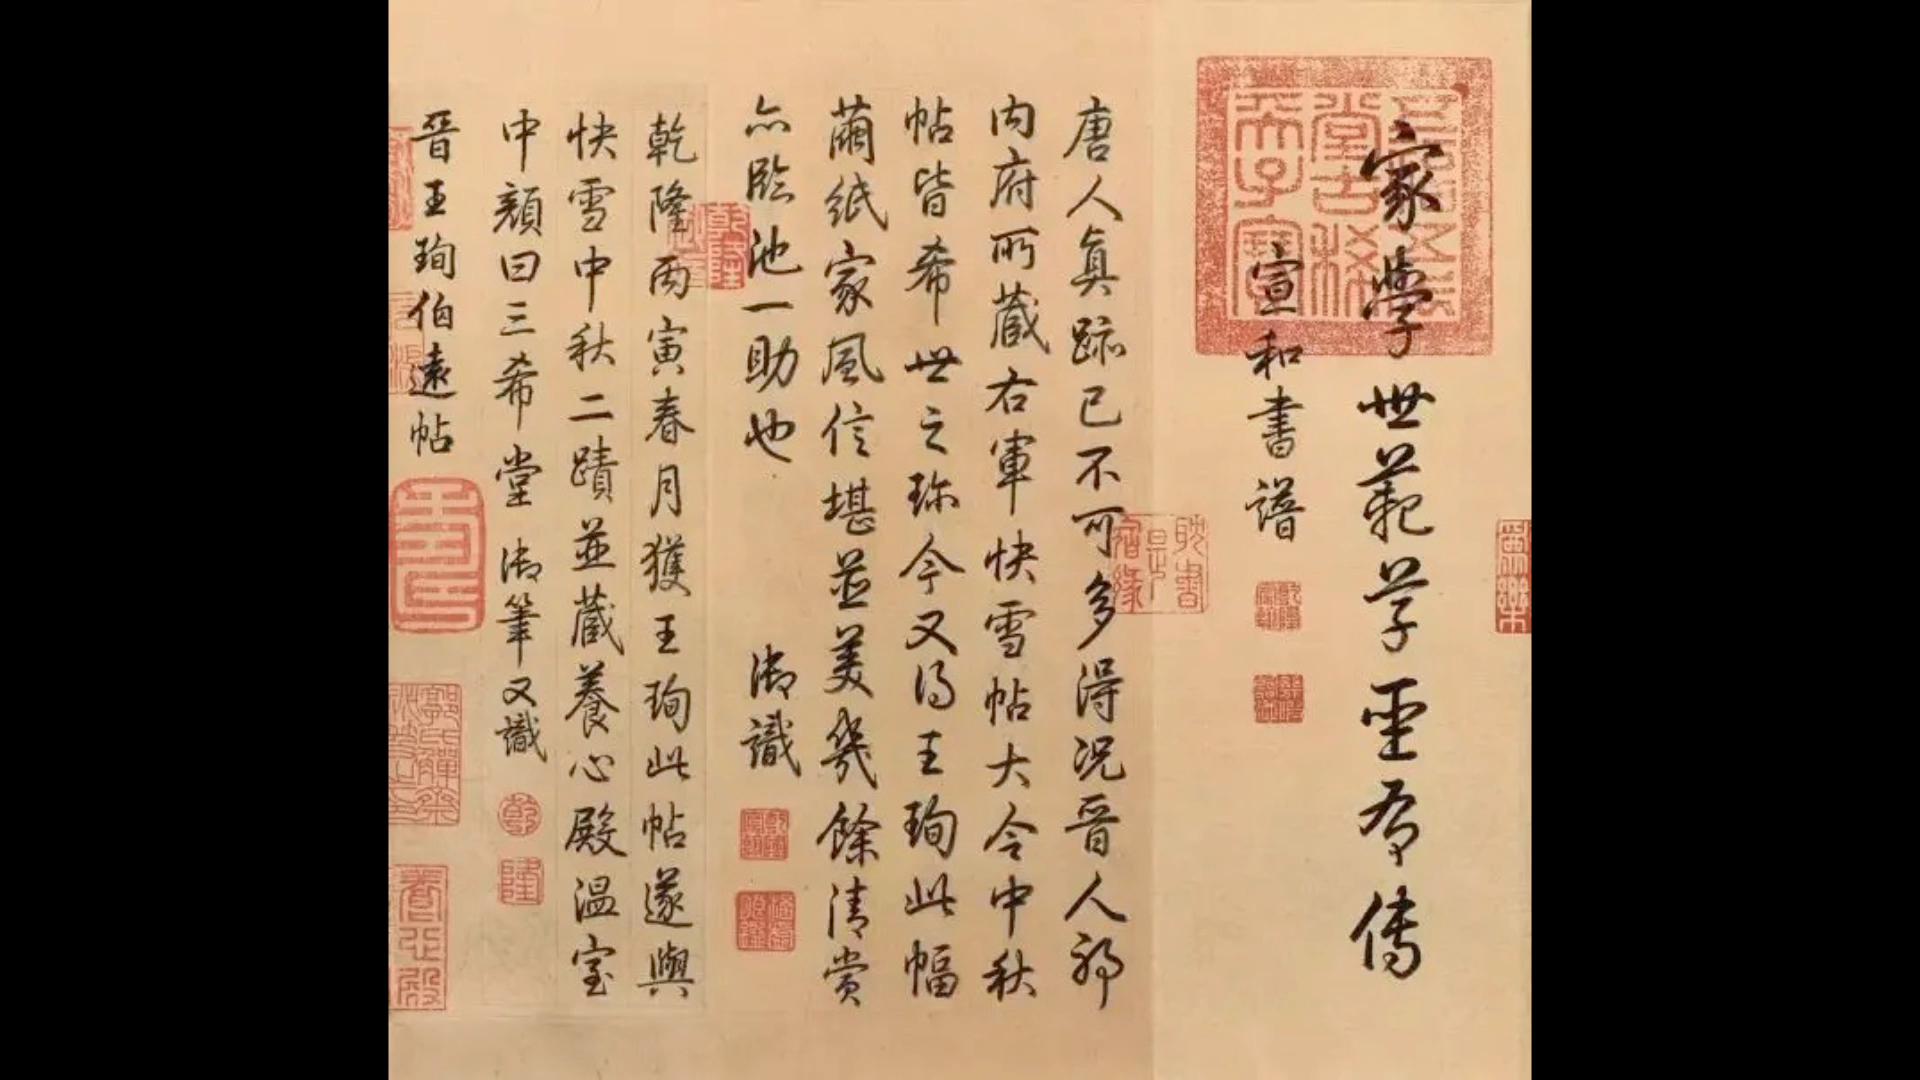 家學世範草聖有傳
宣和書譜
唐人真跡已不可多得況晉人耶
内府所藏右軍快雪帖大令中秋
帖皆希世之珍今又得王珣此幅
繭紙家風信堪並美幾餘清賞
亦臨池一助也 御識
乾隆丙寅春月獲王珣此帖遂與
快雪中秋二蹟並藏養心殿溫室
中顏曰三希堂 御筆又識
晉王珣伯遠帖
乾
隆
養心殿